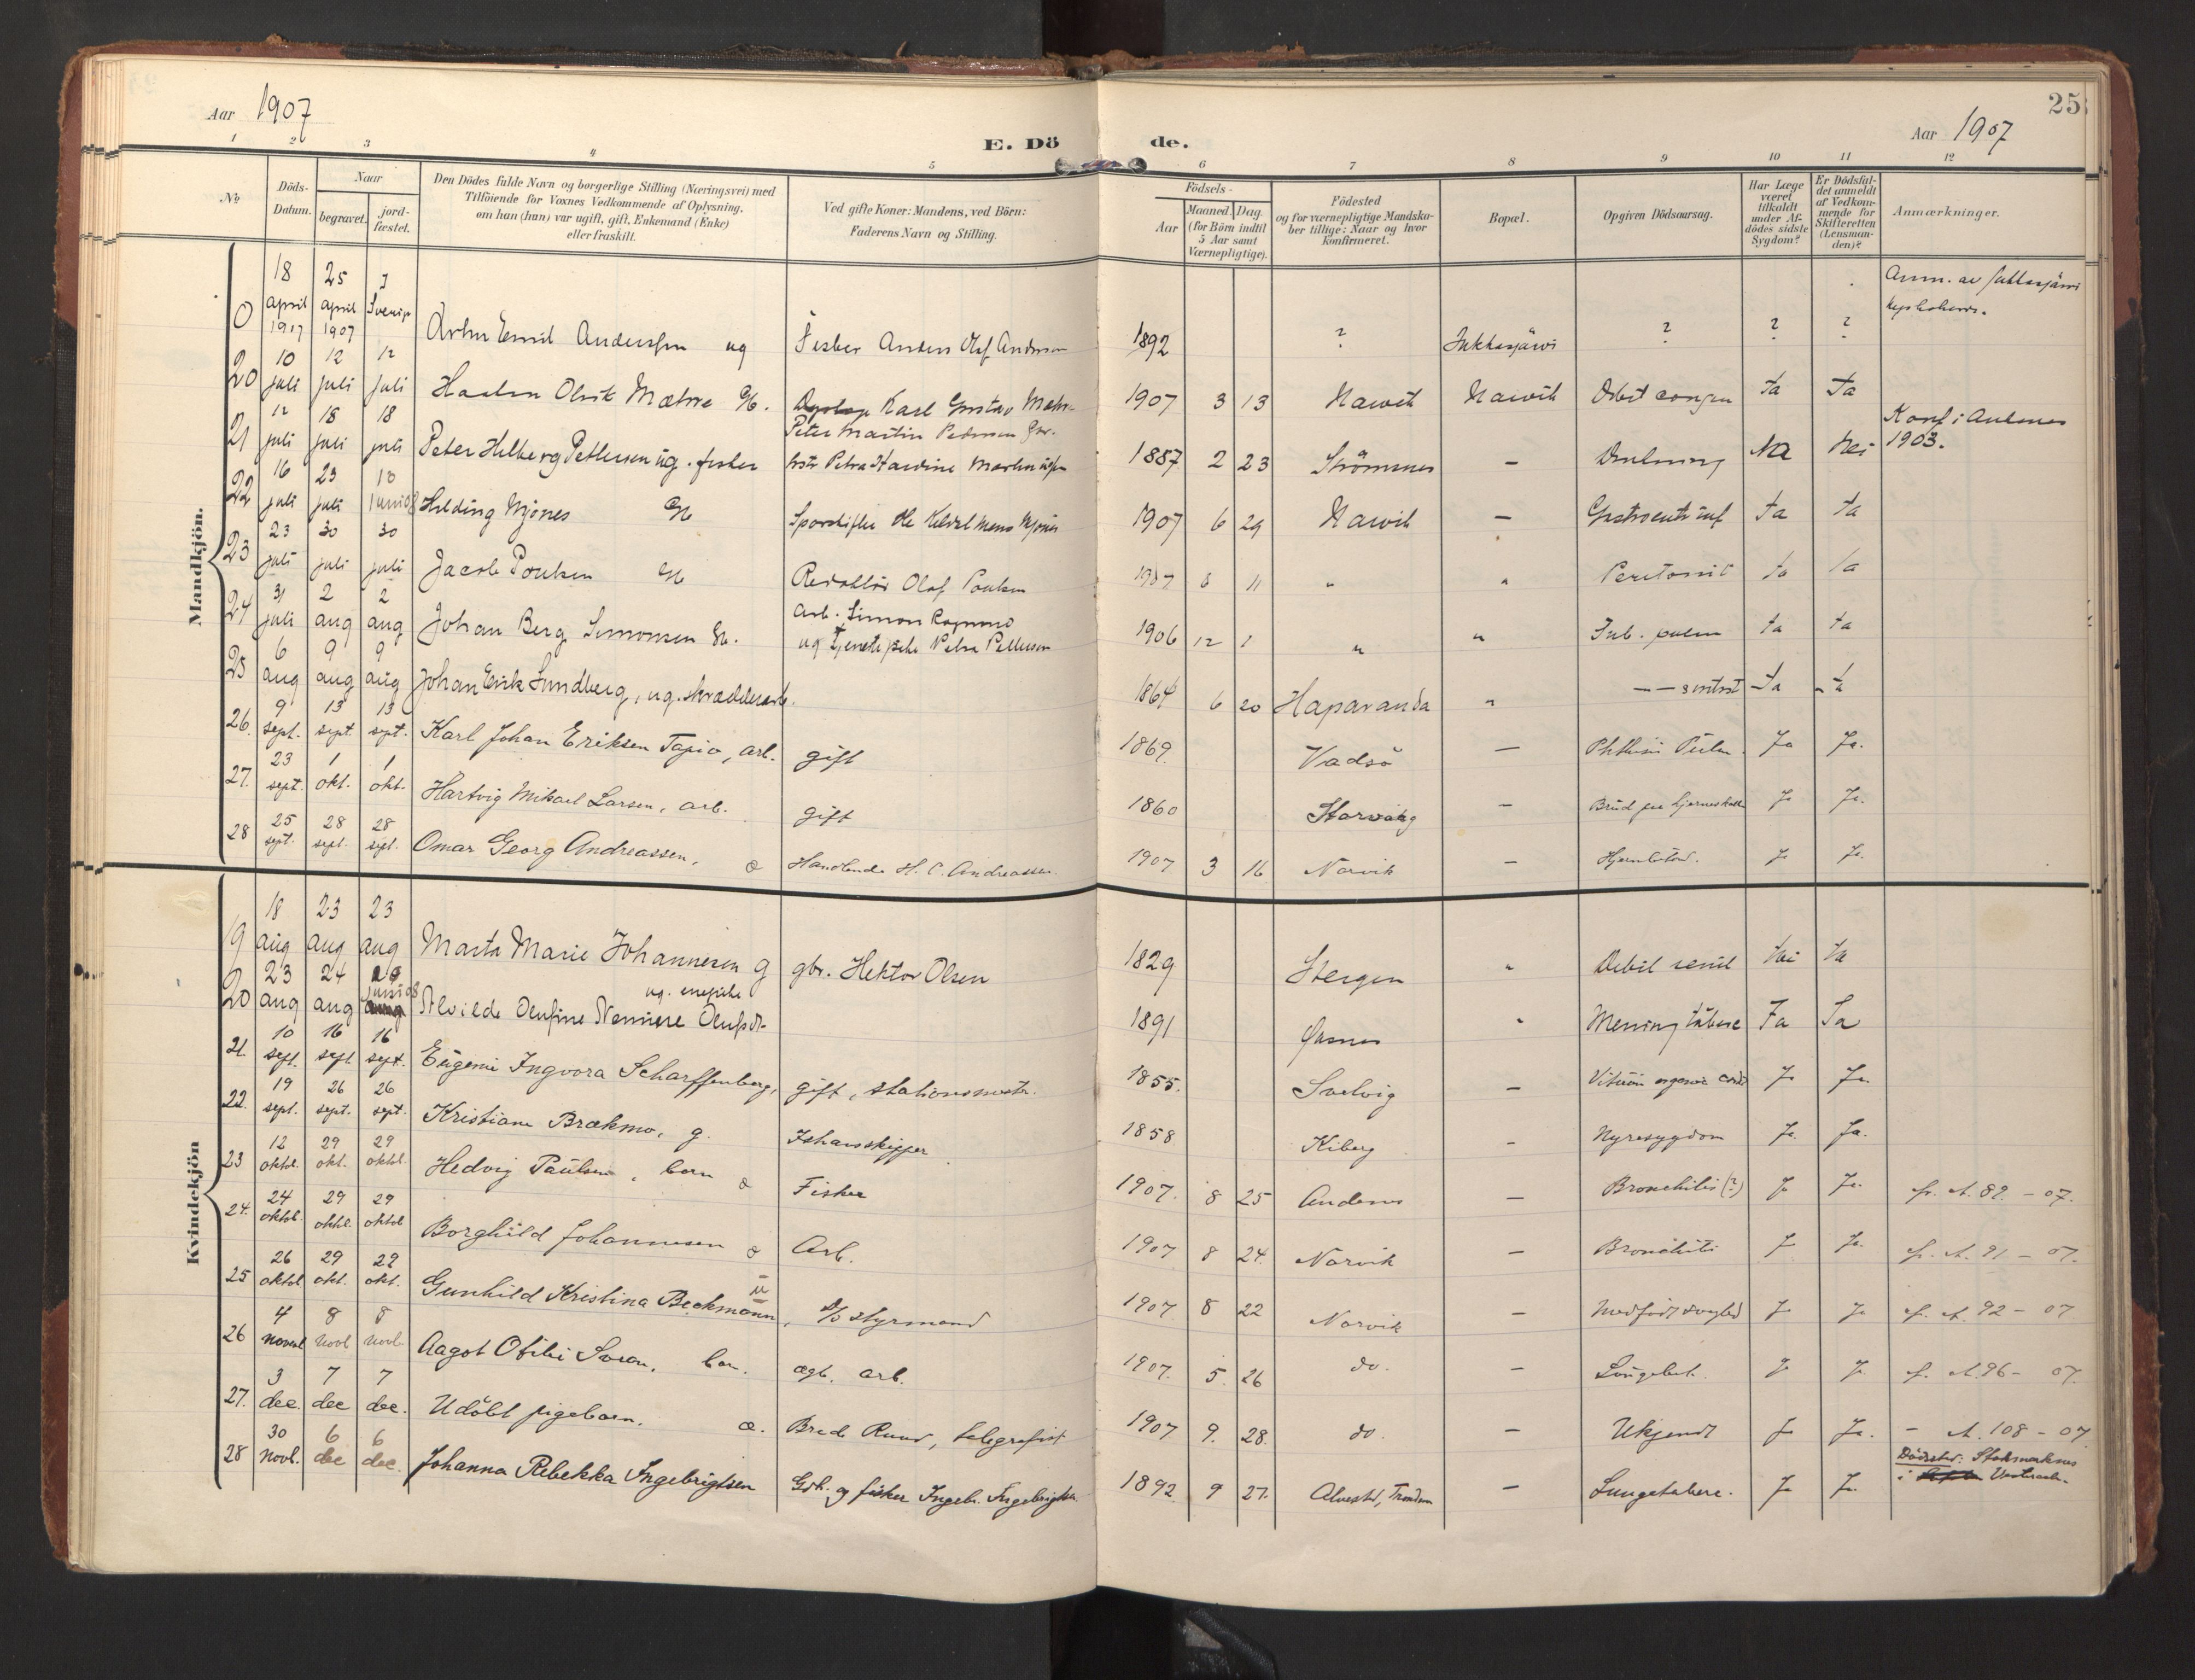 Aar 1907
E. Dö de.
Aar 1907
25
1 2 3 4 5 6 7 8 9 10 11 12
No
Döds-Datum.
Naar
begravet.
jord-fæstet.
Den Dödes fulde Navn og borgerlige Stilling (Næringsvei) med
Tilföiende for Voxnes Vedkommende af Oplysning,
om han (hun) var ugift, gift, Enkemand (Enke)
eller fraskilt.
Ved gifte Koner: Mandens, ved Börn:
Faderens Navn og Stilling.
Födsels-
Aar
Maaned. Dag.
(for Börn indtil
5 Aar samt
Værnepligtige).
Födested
og for værnepligtige Mandska-
ber tillige: Naar og hvor
konfirmeret.
Bopæl.
Opgiven Dödsaarsag.
Har Læge
været
tilkaldt
under Af-
dödes sidste
Sygdom?
Er Dödsfal-
det anmeldt
af Vedkom-
mende for
Skifteretten
(Lensman-
den)?
Anmærkninger.
Mandkjön.
0 18 april 1907 25 april 1907 Emil Anderssen ug Fisker Anders Olaf Andersen 1892 ? Jukkasjärvi ? ? ?
20 10 juli 12 juli 12 juli Haakon Mæhre Karl Gustav 1907 3 13 Narvik Narvik Ja Ja
21 12 juli 18 juli 18 juli Peter Helberg Pettersen ug. fisker Peter Martin Pedersen 1887 2 23 Strömsnes — Drukning Nei Konf. i 1903.
22 16 juli 23 juli 10 juni 08 Hilding Mjönes 1907 6 29 Narvik — Ja Ja
23 23 juli 30 juli 30 juli Jacob Poulsen Redaktör Olaf Poulsen 1907 8 11 " " Peritonit Ja Ja
24 31 juli 2 aug 2 aug Johan Berg Simonsen arb. Simon
ug tjenestepike Petra Pettersen 1906 12 1 " " Tub. pulm Ja Ja
25 6 aug 9 aug 9 aug Johan Erik Sundberg, ug. skrædder 1864 6 20 Haparanda " Ja Ja
26. 9 sept. 13 sept. 13 sept. Karl Johan Eriksen Tapio, arb. gift 1869. Vadsö — Phthisis Pulm. Ja Ja.
27. 23 sept. 1 okt. 1 okt. Hartvig Mikael Larsen, arb. gift 1860 — Brud paa hjerneskallen Ja Ja.
28 25 sept. 28 sept. 28 sept. Omar Georg Andreassen, Handlende H. C. Andreassen. 1907 3 16 Narvik — Ja Ja.
Kvindekjön
19 18 aug 23 aug 23 aug Marta Marie Johannesen g gbr. Hektor Olsen 1829 Steigen " Debil senil Nei Ja
20 23 aug 24 aug juni 08 Alvilde Olufine Olufsdt. 1891 " Mening tubere Ja Ja
21. 10 sept. 16 sept. 16 sept. Eugenie Ingvora Scharffenberg, gift, stationsmester. 1855. Svelvig — Vitium organic cordis Ja Ja.
22. 19 sept. 26 sept. 26 sept. Kristiane Brækmo, g. Ishavsskipper 1858 Kiberg — Nyresygdom Ja. Ja.
23 12 oktbr. 29 okt. 29 oktbr. Hedvig Paulsen, barn Fisker 1907. 8 25 Andenes — Bronchitis (?) Ja Ja. A. 89. - 07.
24. 24 oktbr. 29 oktbr. 29 oktbr. Borghild Johannesen Arb. 1907 8 24. Narvik — Bronchitis Ja Ja. A. 91 - 07.
25 26 oktbr 29 okt. 29 okt. Gunhild Kristina Beckmann, styrmand 1907 8 22 Narvik — Medfödt svaghed Ja Ja A. 92 - 07
26 4 novbr 8 novb 8 novb. Aagot Otilie barn. ægt. arb. 1907. 5. 26 do. — Lungebet. Ja Ja A. 96 - 07.
27. 3 dec. 7 dec 7 dec. Udöbt pigebarn. æ. Brede Ruud, telegrafist 1907 9. 28. do. — Ukjendt Ja Ja. - A. 108 - 07
28 30 novb. 6 dec 6 dec. Johanna Rebekka Ingebrigtsen Gdb. og fisker Ingebr. Ingebrigtsen 1892 9 27. — Lungetubere. Ja Ja. Dödssted: Stokmarknes
i